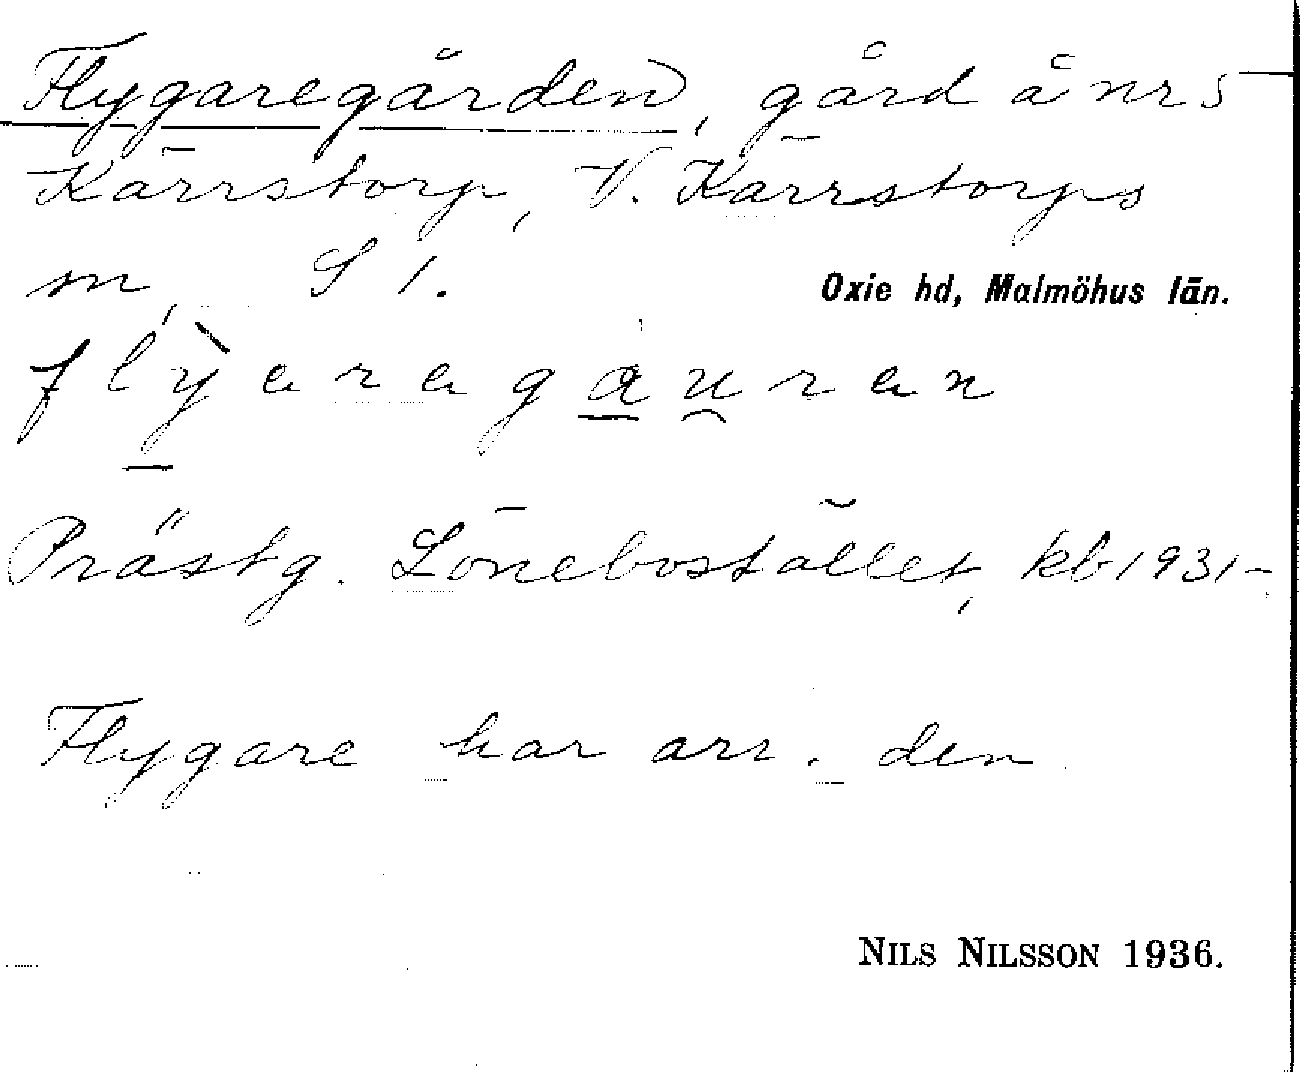 Flygaregården, gård å nr 5
Kärrstorp, V. Kärrstorps
sn, S 1.
Oxie hd, Malmöhus län.
flỳaragauran
Prästg. Lönebostället, kb 1931-
Flygare har arr. den
NILS NILSSON 1936.